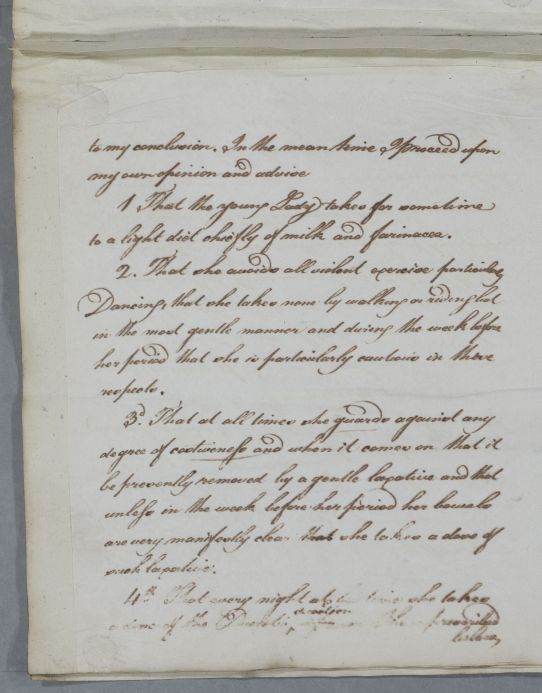 to my conclusion. In the mean time I proceed upon
my own opinion and advise
1 That the young Lady takes for sometime
to a light diet chiefly of milk and farinacea.
2. That she avoids all violent exercise particularly
Dancing, that she takes none by walking or riding but
in the most gentle manner and during the week before
her period that she is particularly cautious in these
respects.
3d. That at all times she guards against any
degree of costiveness and when it comes on that it
be presently removed by a gentle laxative and that
unless in the week before her period her bowels
are very manifestly clear that she takes a dose of
such laxative.
4th That every night at bed time she takes
a dose of the